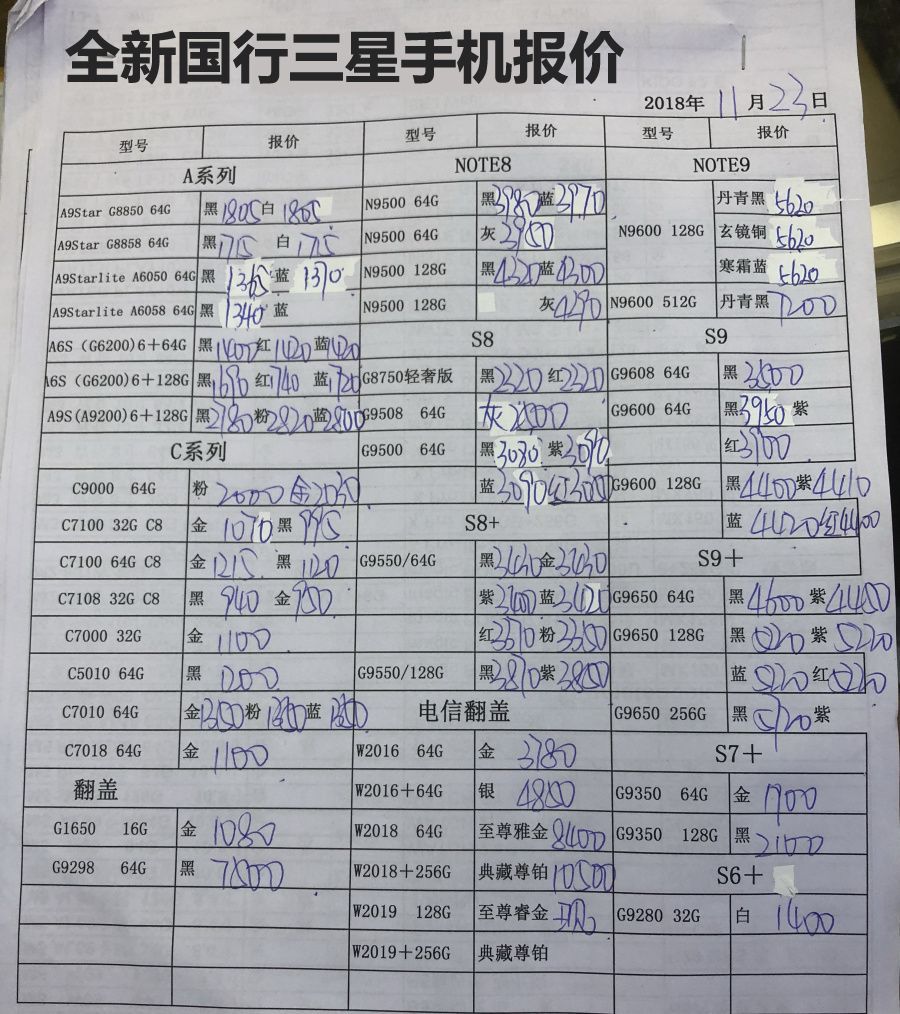 全新国行三星手机报价
2018年 11 月 23 日
型号 报价 型号 报价 型号 报价
A系列 NOTE8 NOTE9
A9Star G8850 64G 黑 1805 白 1805 N9500 64G 黑 3980 蓝 3970 N9600 128G 丹青黑 5620
A9Star G8858 64G 黑 1715 白 1715 N9500 64G 灰 3950 玄镜铜 5620
A9Starlite A6050 64G 黑 1365 蓝 1370 N9500 128G 黑 4320 蓝 4300 寒霜蓝 5620
A9Starlite A6058 64G 黑 1340 蓝 N9500 128G 灰 4290 N9600 512G 丹青黑 7200
A6S (G6200)6+64G 黑 1400 红 1420 蓝 1420 S8 S9
A6S (G6200)6+128G 黑 1690 红 1740 蓝 1720 G8750轻奢版 黑 2320 红 2320 G9608 64G 黑 3500
A9S(A9200)6+128G 黑 2780 粉 2820 蓝 2800 G9508 64G 灰 2800 G9600 64G 黑 3950 紫
C系列 G9500 64G 黑 3080 紫 3090 红 3900
C9000 64G 粉 2000 金 2030 蓝 3090 红 3080 G9600 128G 黑 4400 紫 4410
C7100 32G C8 金 1070 黑 995 S8+ 蓝 4420 红 4400
C7100 64G C8 金 1215 黑 1120 G9550/64G 黑 3430 金 3430 S9+
C7108 32G C8 黑 940 金 950 紫 3400 蓝 3420 G9650 64G 黑 4600 紫 4450
C7000 32G 金 1100 红 3370 粉 3350 G9650 128G 黑 5220 紫 5220
C5010 64G 黑 1200 G9550/128G 黑 3870 紫 3850 蓝 5220 红 5220
C7010 64G 金 1350 粉 1350 蓝 1350 电信翻盖 G9650 256G 黑 紫
C7018 64G 金 1100 W2016 64G 金 3780 S7+
翻盖 W2016+64G 银 4850 G9350 64G 金 1900
G1650 16G 金 1080 W2018 64G 至尊雅金 8400 G9350 128G 黑 2100
G9298 64G 黑 7500 W2018+256G 典藏尊铂 10500 S6+
W2019 128G 至尊睿金 G9280 32G 白 1400
W2019+256G 典藏尊铂